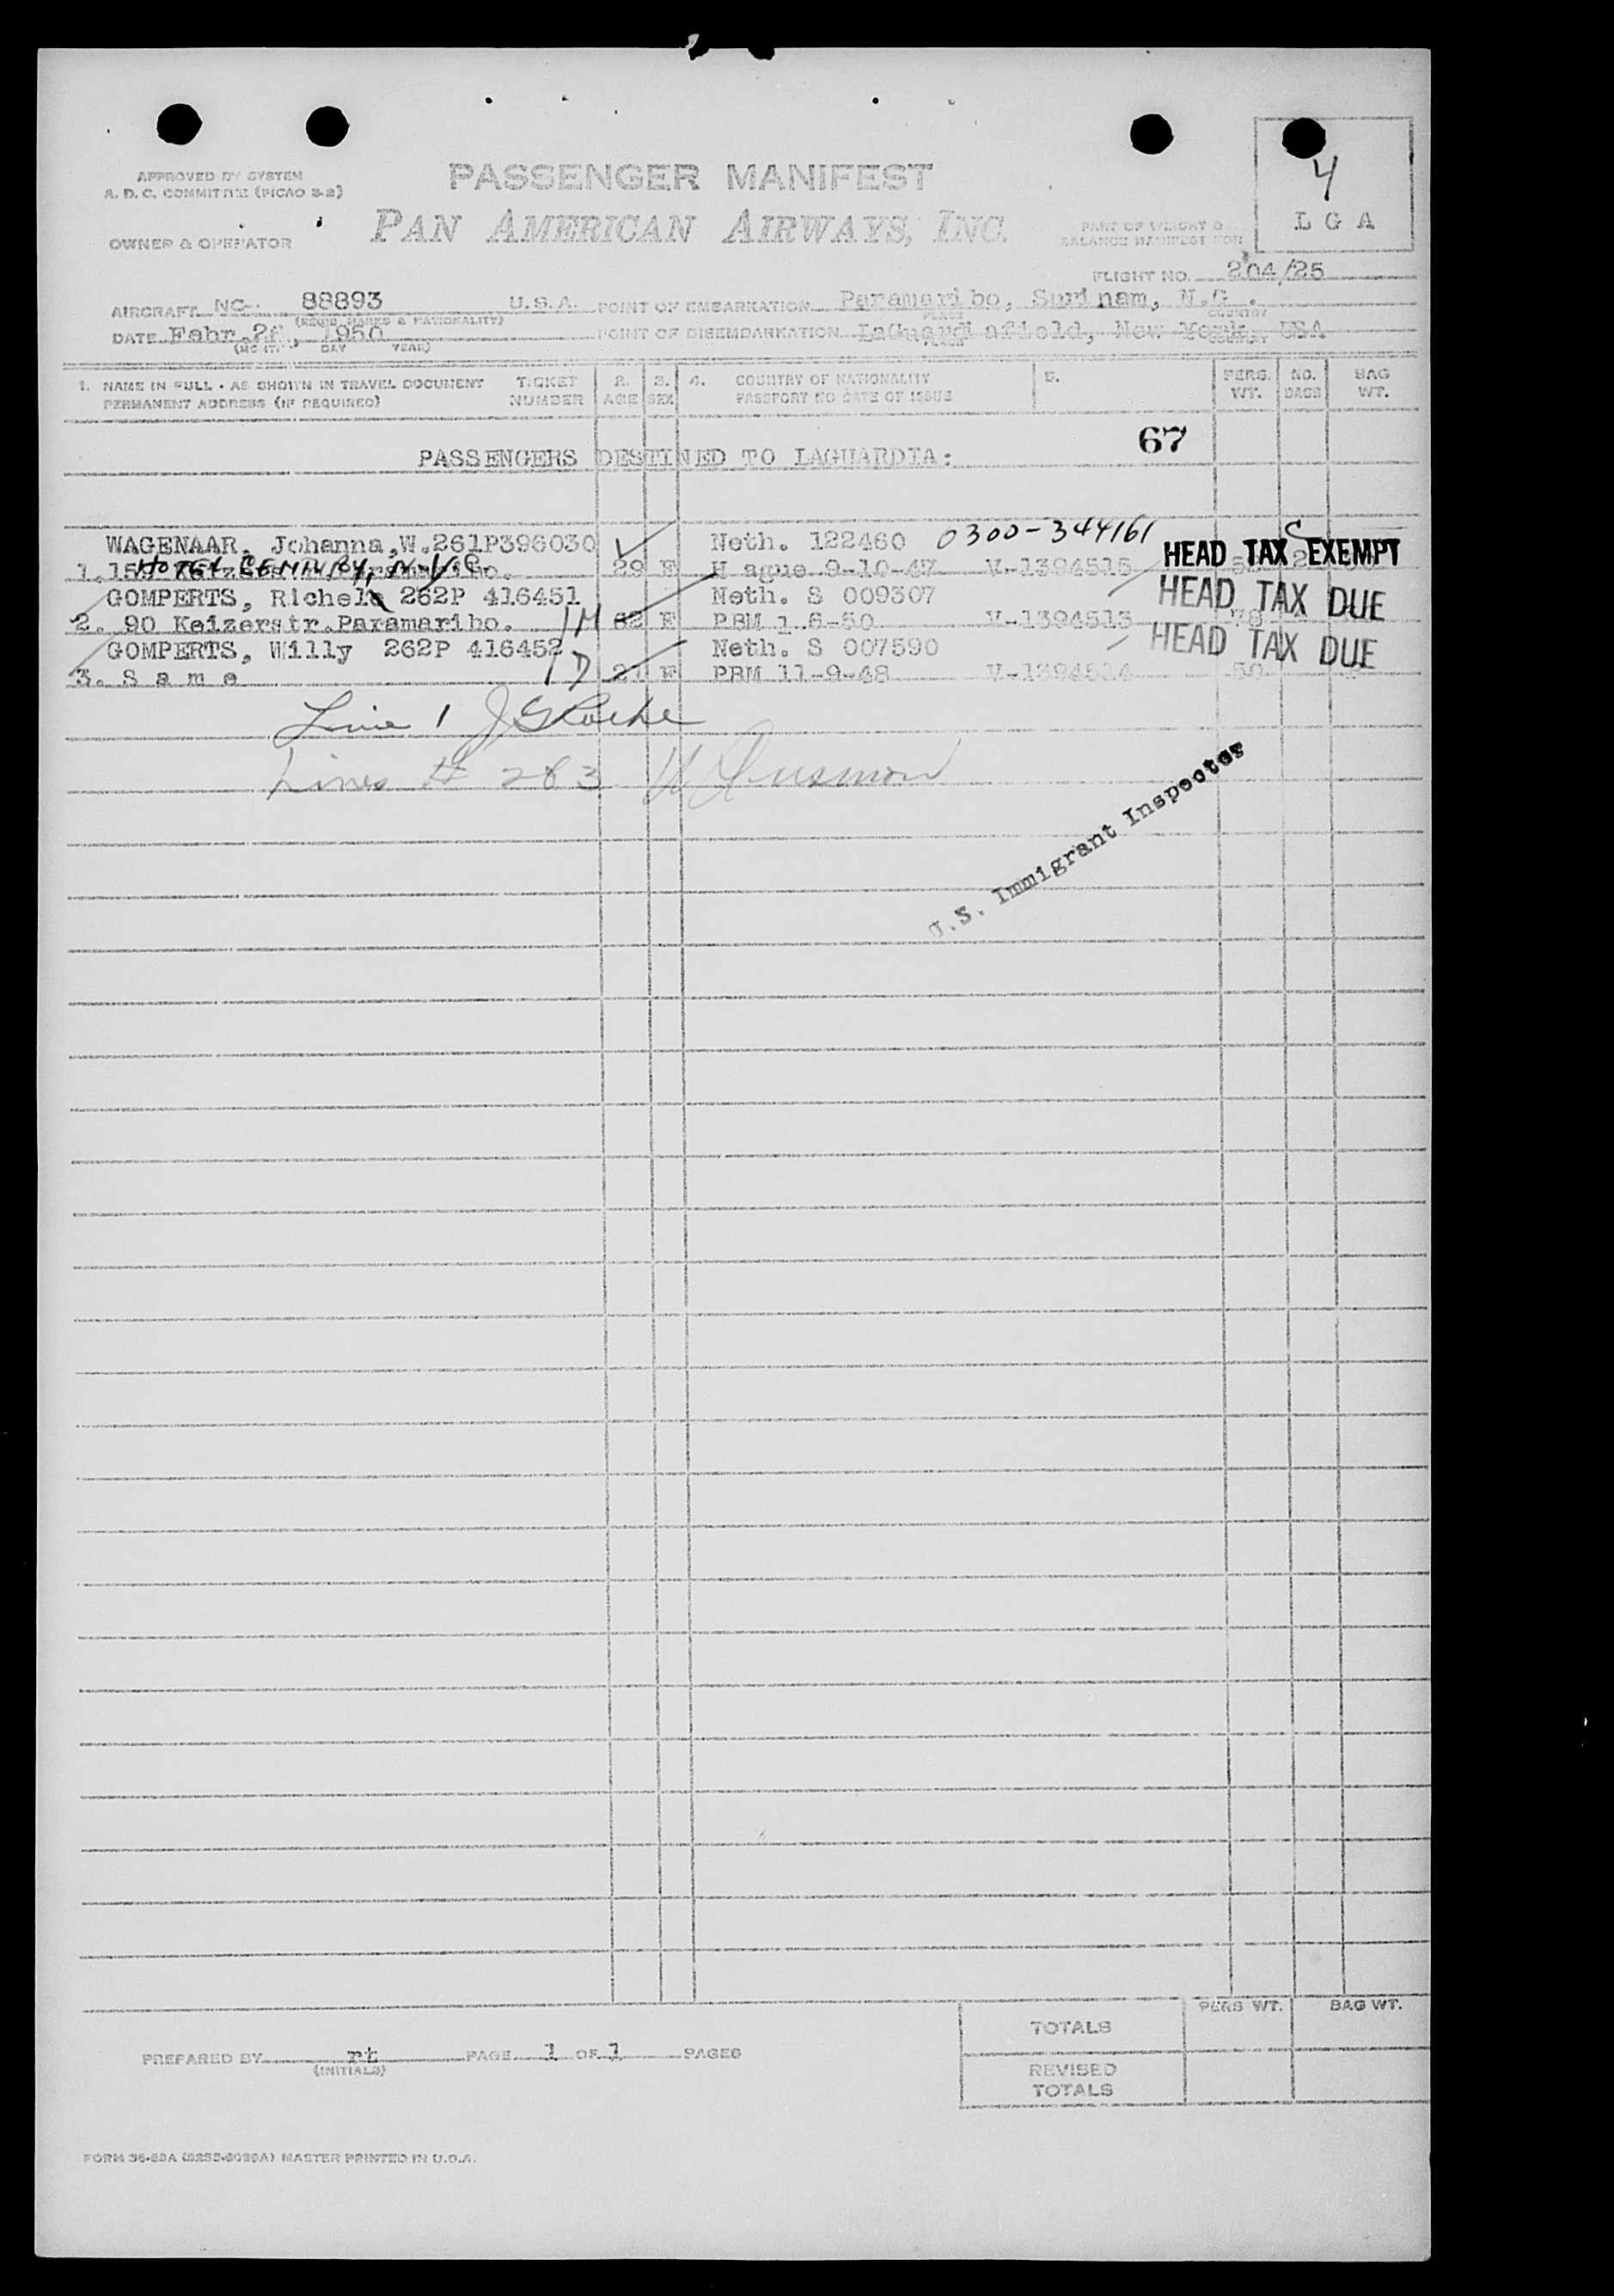 4
L G A
APPROVED BY SYSTEM
A. D. C. COMMITTEE (PICAO 2-2)
PASSENGER MANIFEST
PAN AMERICAN AIRWAYS, INC.
OWNER & OPERATOR
PART OF WEIGHT &
BALANCE MANIFEST FOR
FLIGHT NO. 204/25
AIRCRAFT NC- 88893 U.S.A. POINT OF EMBARKATION Paramaribo, Surinam, N.G.
(REGIS. MARKS & NATIONALITY) PLACE COUNTRY
DATE Febr. 1950 POINT OF DISEMBARKATION LaGuardiafield, New York, USA
(MONTH DAY YEAR) PLACE COUNTRY
1. NAME IN FULL - AS SHOWN IN TRAVEL DOCUMENT TICKET 2. 3. 4. COUNTRY OF NATIONALITY 5. PERS. NO. BAG
PERMANENT ADDRESS (IF REQUIRED) NUMBER AGE SEX PASSPORT NO DATE OF ISSUE WT. BAGS WT.
67
PASSENGERS DESTINED TO LAGUARDIA:
WAGENAAR, Johanna,W.261P396030 Neth. 122460 0300-344161
HEAD TAX EXEMPT
1. HOTEL N.Y.C. 29 F Hague 9-10-47 V-1394515
GOMPERTS, Richele 262P 416451 Neth. S 009307 HEAD TAX DUE
2. 90 Keizerstr.Paramaribo. 1M 62 F PBM 1 6-50 V-1394513 78
GOMPERTS, Willy 262P 416452 Neth. S 007590 HEAD TAX DUE
3. S a m e 1D 21 F PBM 11-9-48 V-1394514 50
Line 1
Lines # 2&3
U.S. Immigrant Inspector
PERS WT. BAG WT.
TOTALS
PREPARED BY rt PAGE 1 OF 1 PAGES
(INITIALS)
REVISED
TOTALS
MASTER PRINTED IN U.S.A.